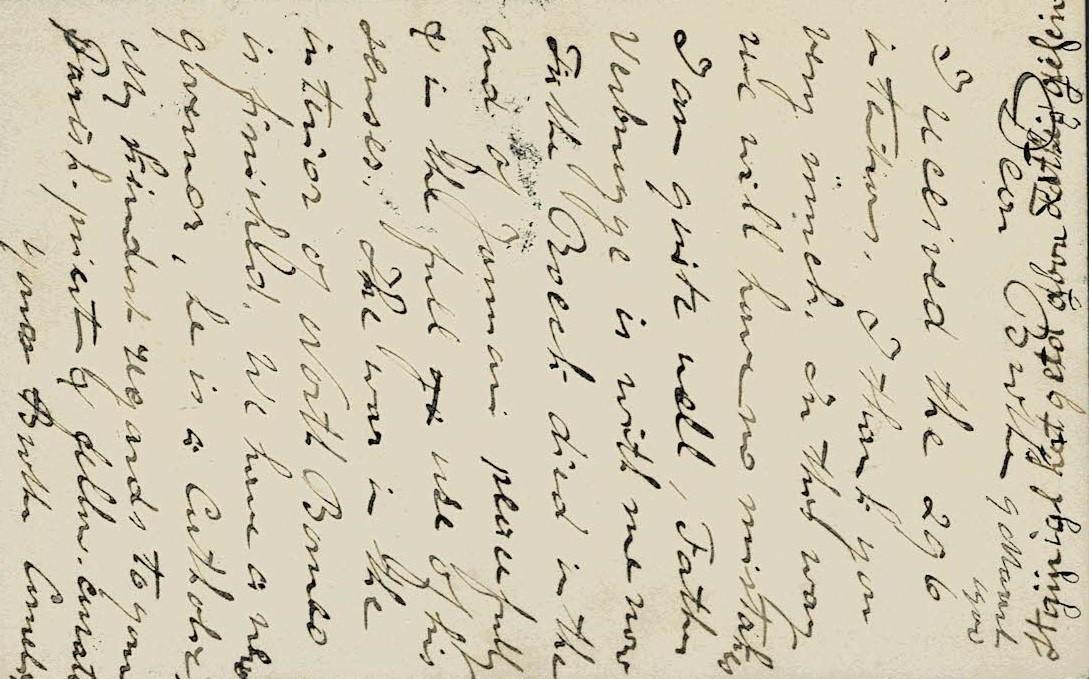 Dear Brother
9 March
1900
I received the 296
intentions. I thank you
very much. In that way
we will have no mistakes
I am quite well, Father
Verbrugge is with me now
Father Roeck died in the
end of January peacefully
& in the full use of his
senses. The war in the
interior of North Borneo
is finished. We have a new
Governor, he is a Catholic
My kindest regards to your
Parish-priest & fellow-curate
Yours Brother